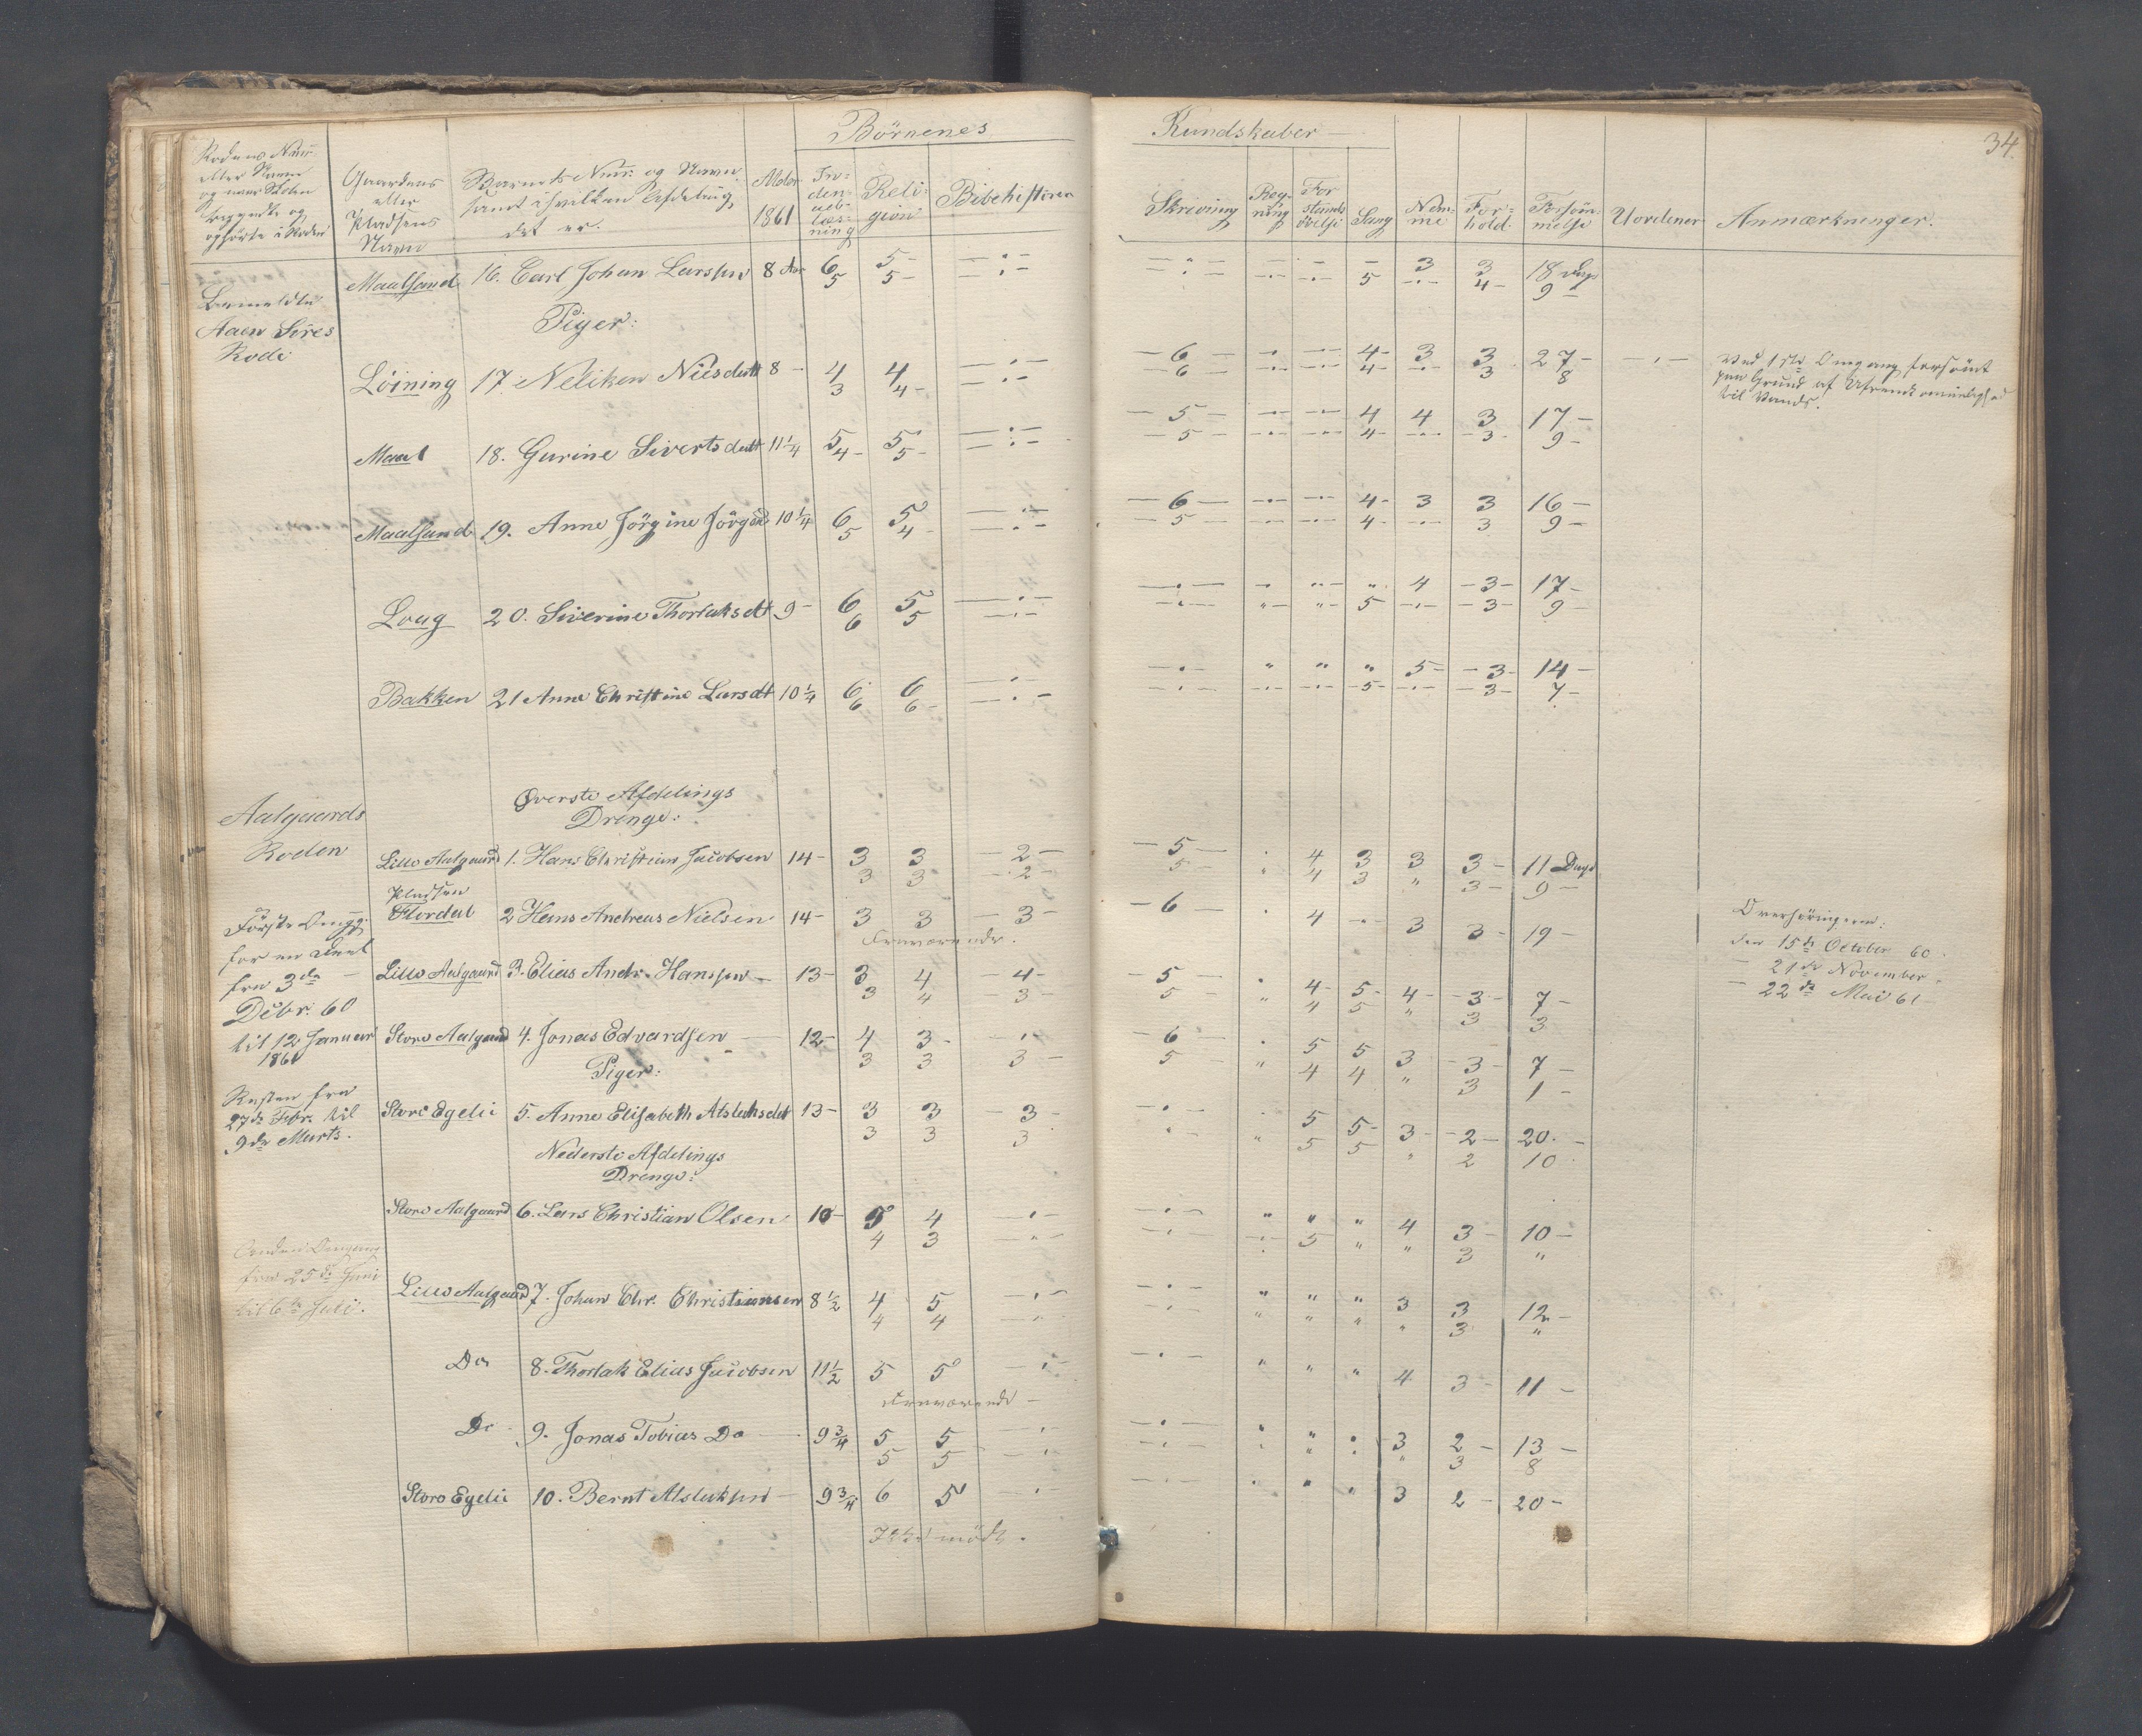 Børnenes Kundskaber 34.
Rodens Num̄
eller Navn
og naar Skolen
begyndte og
ophørte i Roden
Gaardens
eller
Pladsens
Navn
Barnets Num̄: og Navn
samt i hvilken Afdeling
det er.
Alder
1861
In-
den-
ad-
læs-
ning
Reli-
gion
Bibelhistorie
Skrivning
Reg-
ning
For
stands
øvelse
Sang
Nem-
me
For-
hold.
Forsøm-
melse
Uordener
Anmærkninger.
Maalsand 16. Carl Johan Larssen 8 Aar 6 5 3 3 18 Dage
5 5 5 4 9
Bemeldte
Aaen Sires
Rode
Piger:
Løining 17. Neliken Nilsdatt 8 4 4 6 4 3 3 27
3 4 6 4 3 8
Ved 1ste Omgang forsømt
paa Grund af Ufremkommelighed
til Vands.
Maal 18. Gurine Sivertsdatt 11 1/4 5 5 5 4 4 3 17
4 5 5 4 3 9
Maalsand 19. Anne Jørgine Jørgsd 10 1/4 6 5 6 4 3 3 16
5 4 5 4 3 9
Loug 20. Siverine Thorlaksdt 9 6 5 4 3 17
6 5 5 3 9
Bakken 21 Anne Christine Larsdt 10 1/4 6 6 5 3 14
6 6 5 3 7
Aalgaards
Roden
Øverste Afdelings
Drenge:
Lille Aalgaard 1. Hans Christian Jacobsen 14 3 3 2 5 4 3 3 3 11 Dage
3 3 2 5 4 3 " 3 9
Pladsen
Flordal 2 Hans Andreas Nielsen 14 3 3 3 6 4 3 3 19
Fraværende.
Første Omgg:
for en Deel
fra 3de
Dcbr. 60
til 12 Januar
1861
Overhøringerne:
den 15de October 60.
21de November
22de Mai 61
Lille Aalgaard 3. Elias Andr. Hanssen 13 3 4 4 5 4 5 4 3 7
3 4 3 5 " 4 5 " 3 3
Store Aalgaard 4. Jonas Edvardsen 12 4 3 6 5 5 3 3 7
3 3 3 5 " 4 4 " 3 1
Piger:
Resten fra
27de Febr. til
9de Marts.
Store Egelie 5. Anne Elisabeth Atslaksdat 13 3 3 3 5 5 3 2 20
3 3 3 " 5 5 " 2 10
Nederste Afdelings
Drenge:
Store Aalgaard 6. Lars Christian Olsen 10 5 4 " " " 4 3 10
4 3 5 " " 3 "
Anden Omgang
fra 25de Juni
til 6te Juli.
Lille Aalgaard 7. Johan Chr. Christiansen 8 1/2 4 5 " " " 3 3 12
4 4 " " " " 3 "
Do 8. Thorlak Elias Jacobsen 11 1/2 5 5 " " " 4 3 11
Fraværende
Do 9. Jonas Tobias Do 9 3/4 5 5 3 2 13
5 5 3 8
Store Egelie 10. Bernt Atslaksen 9 3/4 6 5 3 2 20
Ikke mødt.